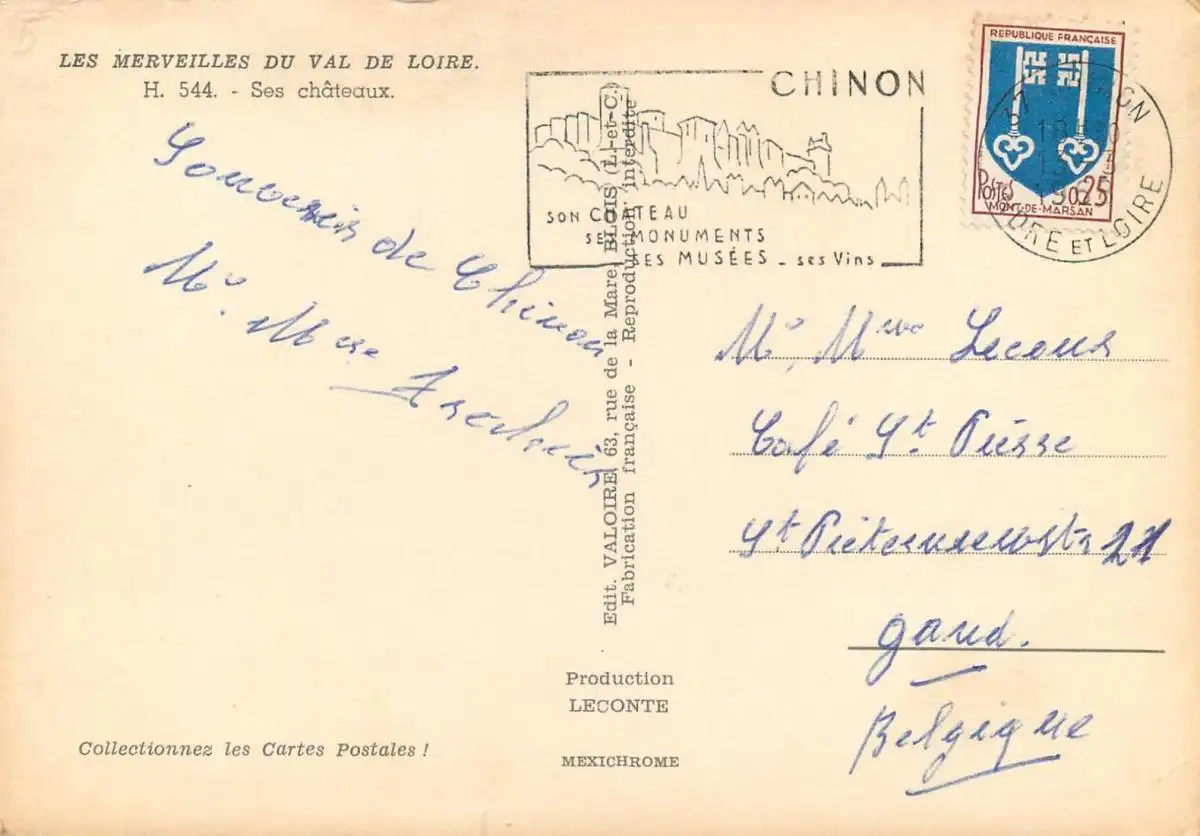 LES MERVEILLES DU VAL DE LOIRE.
H. 544. - Ses châteaux.
Souvenir de Chinon
Mr. Mme
CHINON
SON CHATEAU
SES MONUMENTS
SES MUSÉES - ses Vins
REPUBLIQUE FRANÇAISE
POSTES 0,25
MONT-DE-MARSAN
37 CHINON
INDRE ET LOIRE
Edit. VALOIRE, 63, rue de la Mare, BLOIS (L.-et-C.)
Fabrication française - Reproduction interdite
Mr, Mme
Café St
St 21
Gand.
Belgique
Production
LECONTE
MEXICHROME
Collectionnez les Cartes Postales !